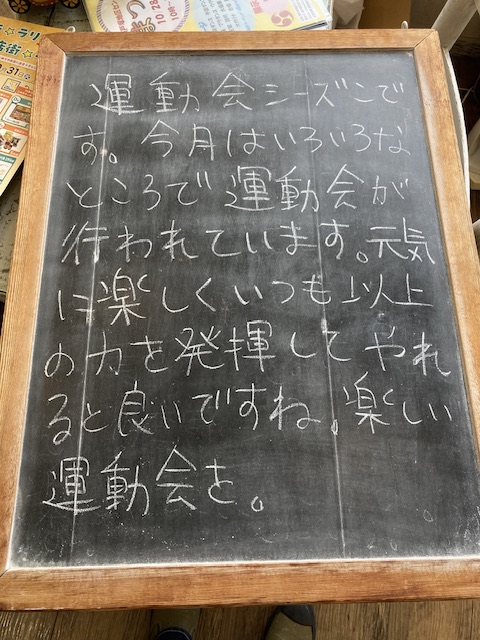 ラリ
街
月31日
10時
10/28
運動会シーズンで
す。今月はいろいろな
ところで運動会が
行われています。元気
に楽しくいつも以上
の力を発揮してやれ
ると良いですね。楽しい
運動会を。